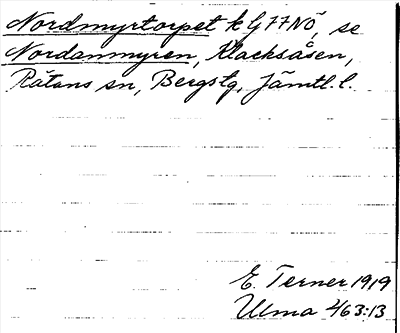 Nordmyrtorpet k G 77 NÖ, se
Nordanmyren, Klacksåsen,
Rätans sn, Bergs tg, Jämtl. l.
E. Terner 1919
Ulma 463:13